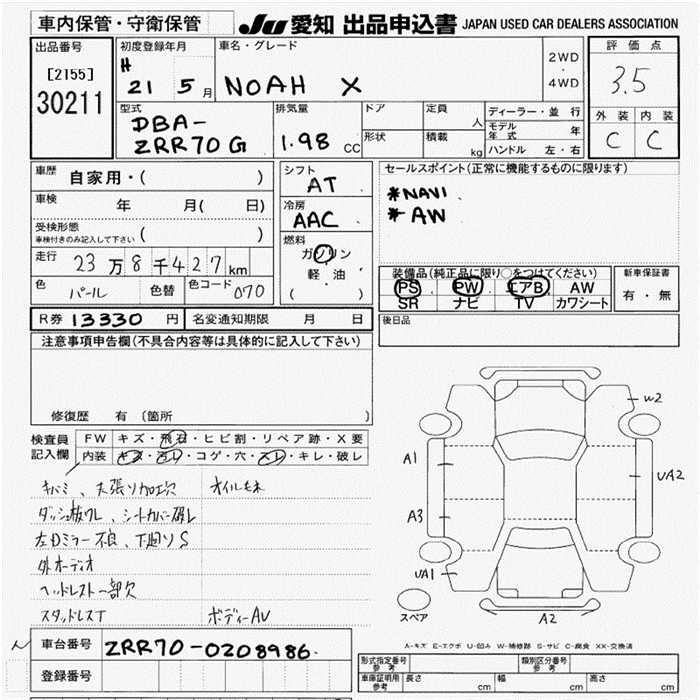 車内保管・守衛保管
JU 愛知 出品申込書 JAPAN USED CAR DEALERS ASSOCIATION
出品番号
[2155]
30211
初度登録年月
H
21 5月
車名・グレード
NOAH X
2WD
・
4WD
評価点
3.5
外装 内装
C C
型式
DBA-
ZRR70G
排気量
1.98 CC
ドア
形状
定員 人
積載 kg
ディーラー・並行
モデル年式 年
ハンドル 左・右
車歴 自家用・( )
車検 年 月( 日)
受検形態
車検付きのみ記入して下さい ( )
走行 23万8千427km
色 パール 色替 色コード 070
シフト
AT
冷房
AAC
燃料
ガソリン
軽油
( )
セールスポイント(正常に機能するものに限ります)
*NAVI
*AW
装備品(純正品に限り○をつけてください)
PS PW エアB AW
SR ナビ TV カワシート
新車保証書
有・無
R券 13330 円 名変通知期限 月 日
後日品
注意事項申告欄(不具合内容等は具体的に記入して下さい)
修復歴 有 (箇所 )
検査員
記入欄
FW キズ・飛石・ヒビ割・リペア跡・X要
内装 キズ・汚レ・コゲ・穴・スレ・キレ・破レ
キバミ、天張リ加工次 オイルモレ
ダッシュ板ワレ、シートカバー破レ
左Dミラー不良、下廻りS
外オーディオ
ヘッドレスト一部欠
スタッドレスT ボディーAU
W2
A1
UA2
A3
UA1
スペア
A2
A-キズ E-エクボ U-凹み W-補修跡 S-サビ C-腐食 XX-交換済
車台番号 ZRR70-0208986
登録番号
型式指定番号 参考
類別区分番号 参考
車庫証明用 参考 長さ cm 幅 cm 高さ cm